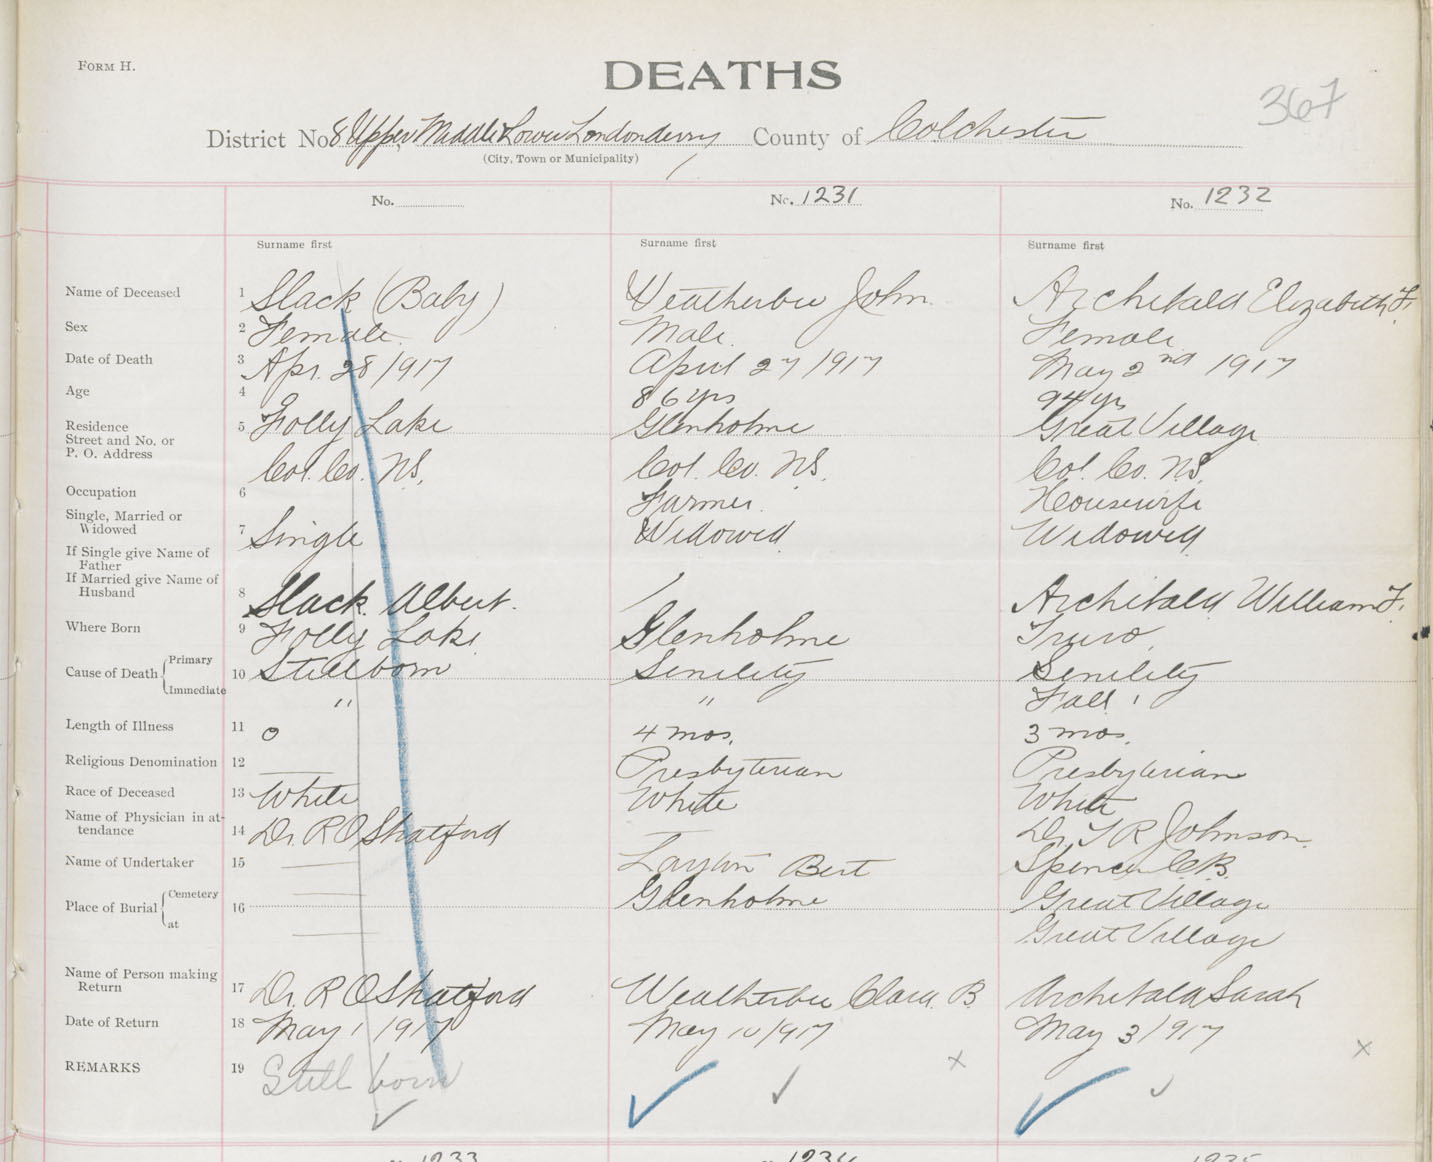 FORM H.
DEATHS
367
District No 8 Upper, Middle & Lower Londonderry County of Colchester
(City, Town or Municipality)
No. No. 1231 No. 1232
Surname first Surname first Surname first
Name of Deceased 1 Slack (Baby) Weatherbee John. Archibald Elizabeth F.
Sex 2 Female. Male. Female
Date of Death 3 Apr. 28/1917 April 27/1917 May 2nd 1917
Age 4 86 yrs 94 yrs
Residence 5 Folly Lake Glenholme Great Village
Street and No. or
P. O. Address Col. Co. N.S. Col. Co. N.S. Col. Co. N.S.
Occupation 6 Farmer. Housewife
Single, Married or
Widowed 7 Single Widowed Widowed
If Single give Name of
Father
If Married give Name of
Husband 8 Slack. Albert. Archibald William F.
Where Born 9 Folly Lake Glenholme Truro
Cause of Death Primary 10 Stillborn Senility Senility
Immediate " " Fall
Length of Illness 11 0 4 mos. 3 mos.
Religious Denomination 12 Presbyterian Presbyterian
Race of Deceased 13 White White White
Name of Physician in at-
tendance 14 Dr. R O Shatford Dr. T R Johnson.
Name of Undertaker 15 Layton Bert Spencer C.B.
Place of Burial Cemetery 16 Glenholme Great Village
at Great Village
Name of Person making
Return 17 Dr. R O Shatford Weatherbee Clara B Archibald Sarah
Date of Return 18 May 1/917 May 10/917 May 3/917
REMARKS 19 Still born x x
1233 1234 1235